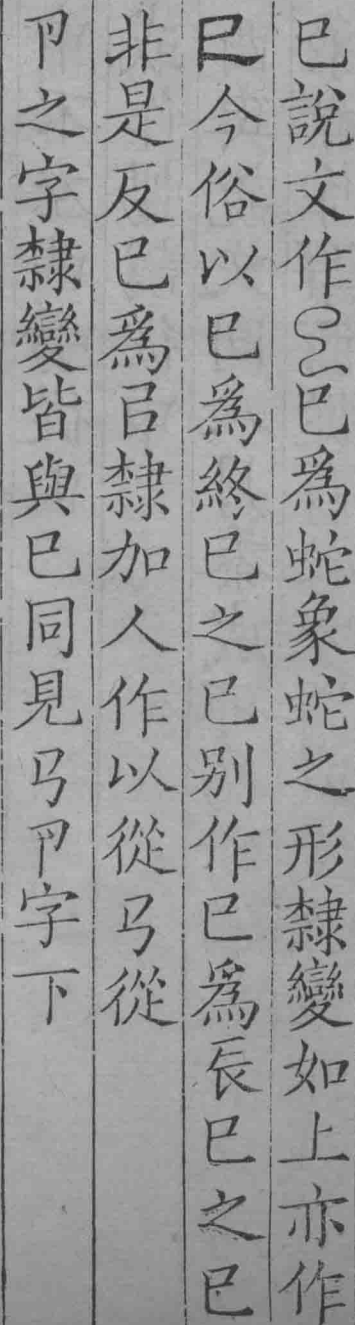 巳說文作巳爲蛇象蛇之形隸變如上亦作
㠯今俗以巳爲終巳之已别作巳爲辰巳之巳
非是反巳爲㠯隸加人作以從𢎘從
卪之字隸變皆與巳同見𢎘卪字下